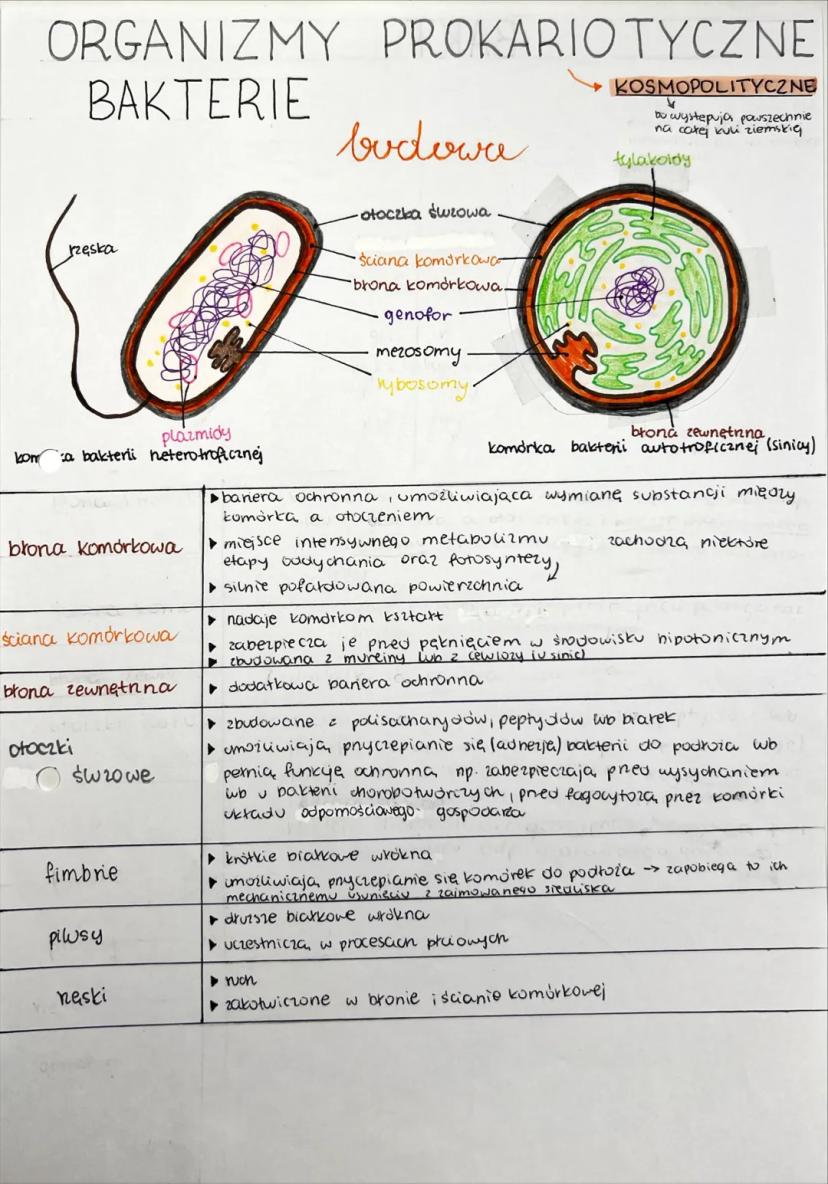 ORGANIZMY PROKARIOTYCZNE
BAKTERIE
KOSMOPOLITYCZNE
bo występują powszechnie
na całej kuli ziemskiej
budowa
tylakoidy
rzęska
otoczka śluzowa
ściana komórkowa
błona komórkowa
genofor
mezosomy
rybosomy
plazmidy
błona zewnętrzna
bakterii heterotroficznej
komórka bakterii autotroficznej (sinicy)
błona komórkowa
▸ bariera ochronna, umożliwiająca wymianę substancji między
komórką a otoczeniem
▸ miejsce intensywnego metabolizmu zachodzą niektóre
etapy oddychania oraz fotosyntezy
▸ silnie pofałdowana powierzchnia
ściana komórkowa
▸ nadaje komórkom kształt
▸ zabezpiecza je przed pęknięciem w środowisku hipotonicznym
▸ zbudowana z mureiny lub z celulozy (u sinic)
błona zewnętrzna
▸ dodatkowa bariera ochronna
otoczki
śluzowe
▸ zbudowane z polisacharydów, peptydów lub białek
▸ umożliwiają przyczepianie się (adhezję) bakterii do podłoża lub
pełnią funkcję ochronną np. zabezpieczają przed wysychaniem
lub u bakterii chorobotwórczych, przed fagocytozą przez komórki
układu odpornościowego gospodarza
fimbrie
▸ krótkie białkowe włókna
▸ umożliwiają przyczepianie się komórek do podłoża -> zapobiega to ich
mechanicznemu usunięciu z zajmowanego siedliska
pilusy
▸ dłuższe białkowe włókna
▸ uczestniczą w procesach płciowych
rzęski
▸ ruch
▸ zakotwiczone w błonie i ścianie komórkowej